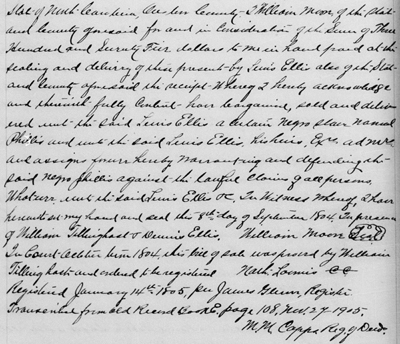 State of North Carolina, Onslow County - I William Moon of the State
and County aforesaid for and in Consideration of the Sum of Three
Hundred and Seventy Five dollars to me in hand paid at the
sealing and delivery of these present - by Lewis Ellis also of the State
and County aforesaid the receipt - Whereof I hereby acknowledge
and therewith fully Content - have bargained, sold and deliv-
ered unto the said Lewis Ellis a certain Negro slave named
Phillis and unto the said Lewis Ellis, his heirs, Exrs, admrs
and assigns forever hereby Warranting and defending the
said negro Phillis against the lawful Claims of all persons,
Whatever, unto the said Lewis Ellis &C, In Witness whereof I have
hereunto set my hand and seal this 8th day of September 1804, In presence
of William Tillinghast & Dennis Ellis, William Moon Seal
In Court October term 1804, this bill of sale was proved by William
Tillinghast and ordered to be registered Nath Loomis CC
Registered January 14th 1805, per James Glenn, Register
Transcribed from old Record Book E, page 108, Nov. 27 - 1905.
M. M. Capps Reg. of Deeds.